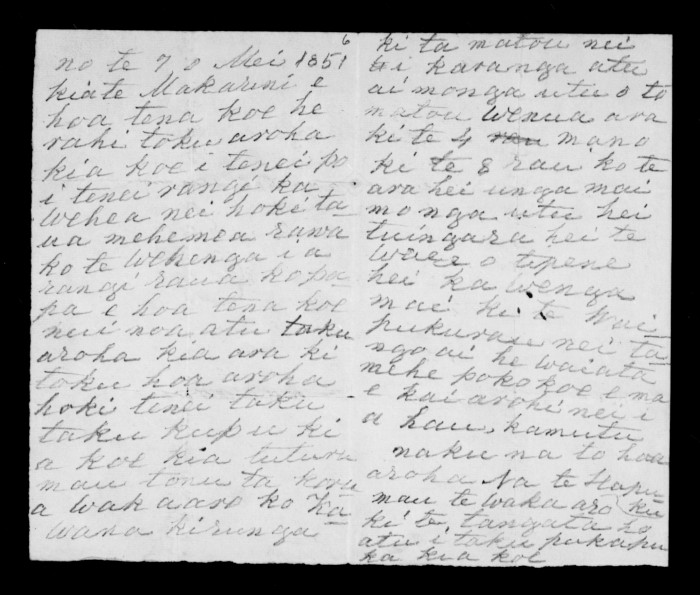 no te 7 o Mei 1851
6
kiate Makarini e
hoa tena koe he
rahi toku aroha
kia koe i tenei po
i tenei rangi ka
wehea nei hoki ta-
ua mehemea rawa
ko te wehenga i a
rangi raua ko pa-
pa e hoa tena koe
nui noa atu taku
aroha kia ara ki
toku hoa aroha
hoki tenei taku
taku kupu ki
a koe kia tuturu
mau tonu ta korua
a wakaaro ko Ka-
wana kirunga
ki ta matou nei
i karanga atu
ai monga utu o to
matou wenua ara
ki te 4 mano
ki te 8 rau ko te
ara hei unga mai
mo nga utu hei
tuingara hei te
o tipene
hei ka wenga
mai ki te Wai-
pukurau nei ta-
ngo ai he waiata
mehe poko koe e ma
e kai arohi nei i
a hau, kamutu
naku na to hoa
aroha Na te Hapu-
ku
mau te waka aro
ki te tangata ho
atu i taku pukapu
ka kia koe